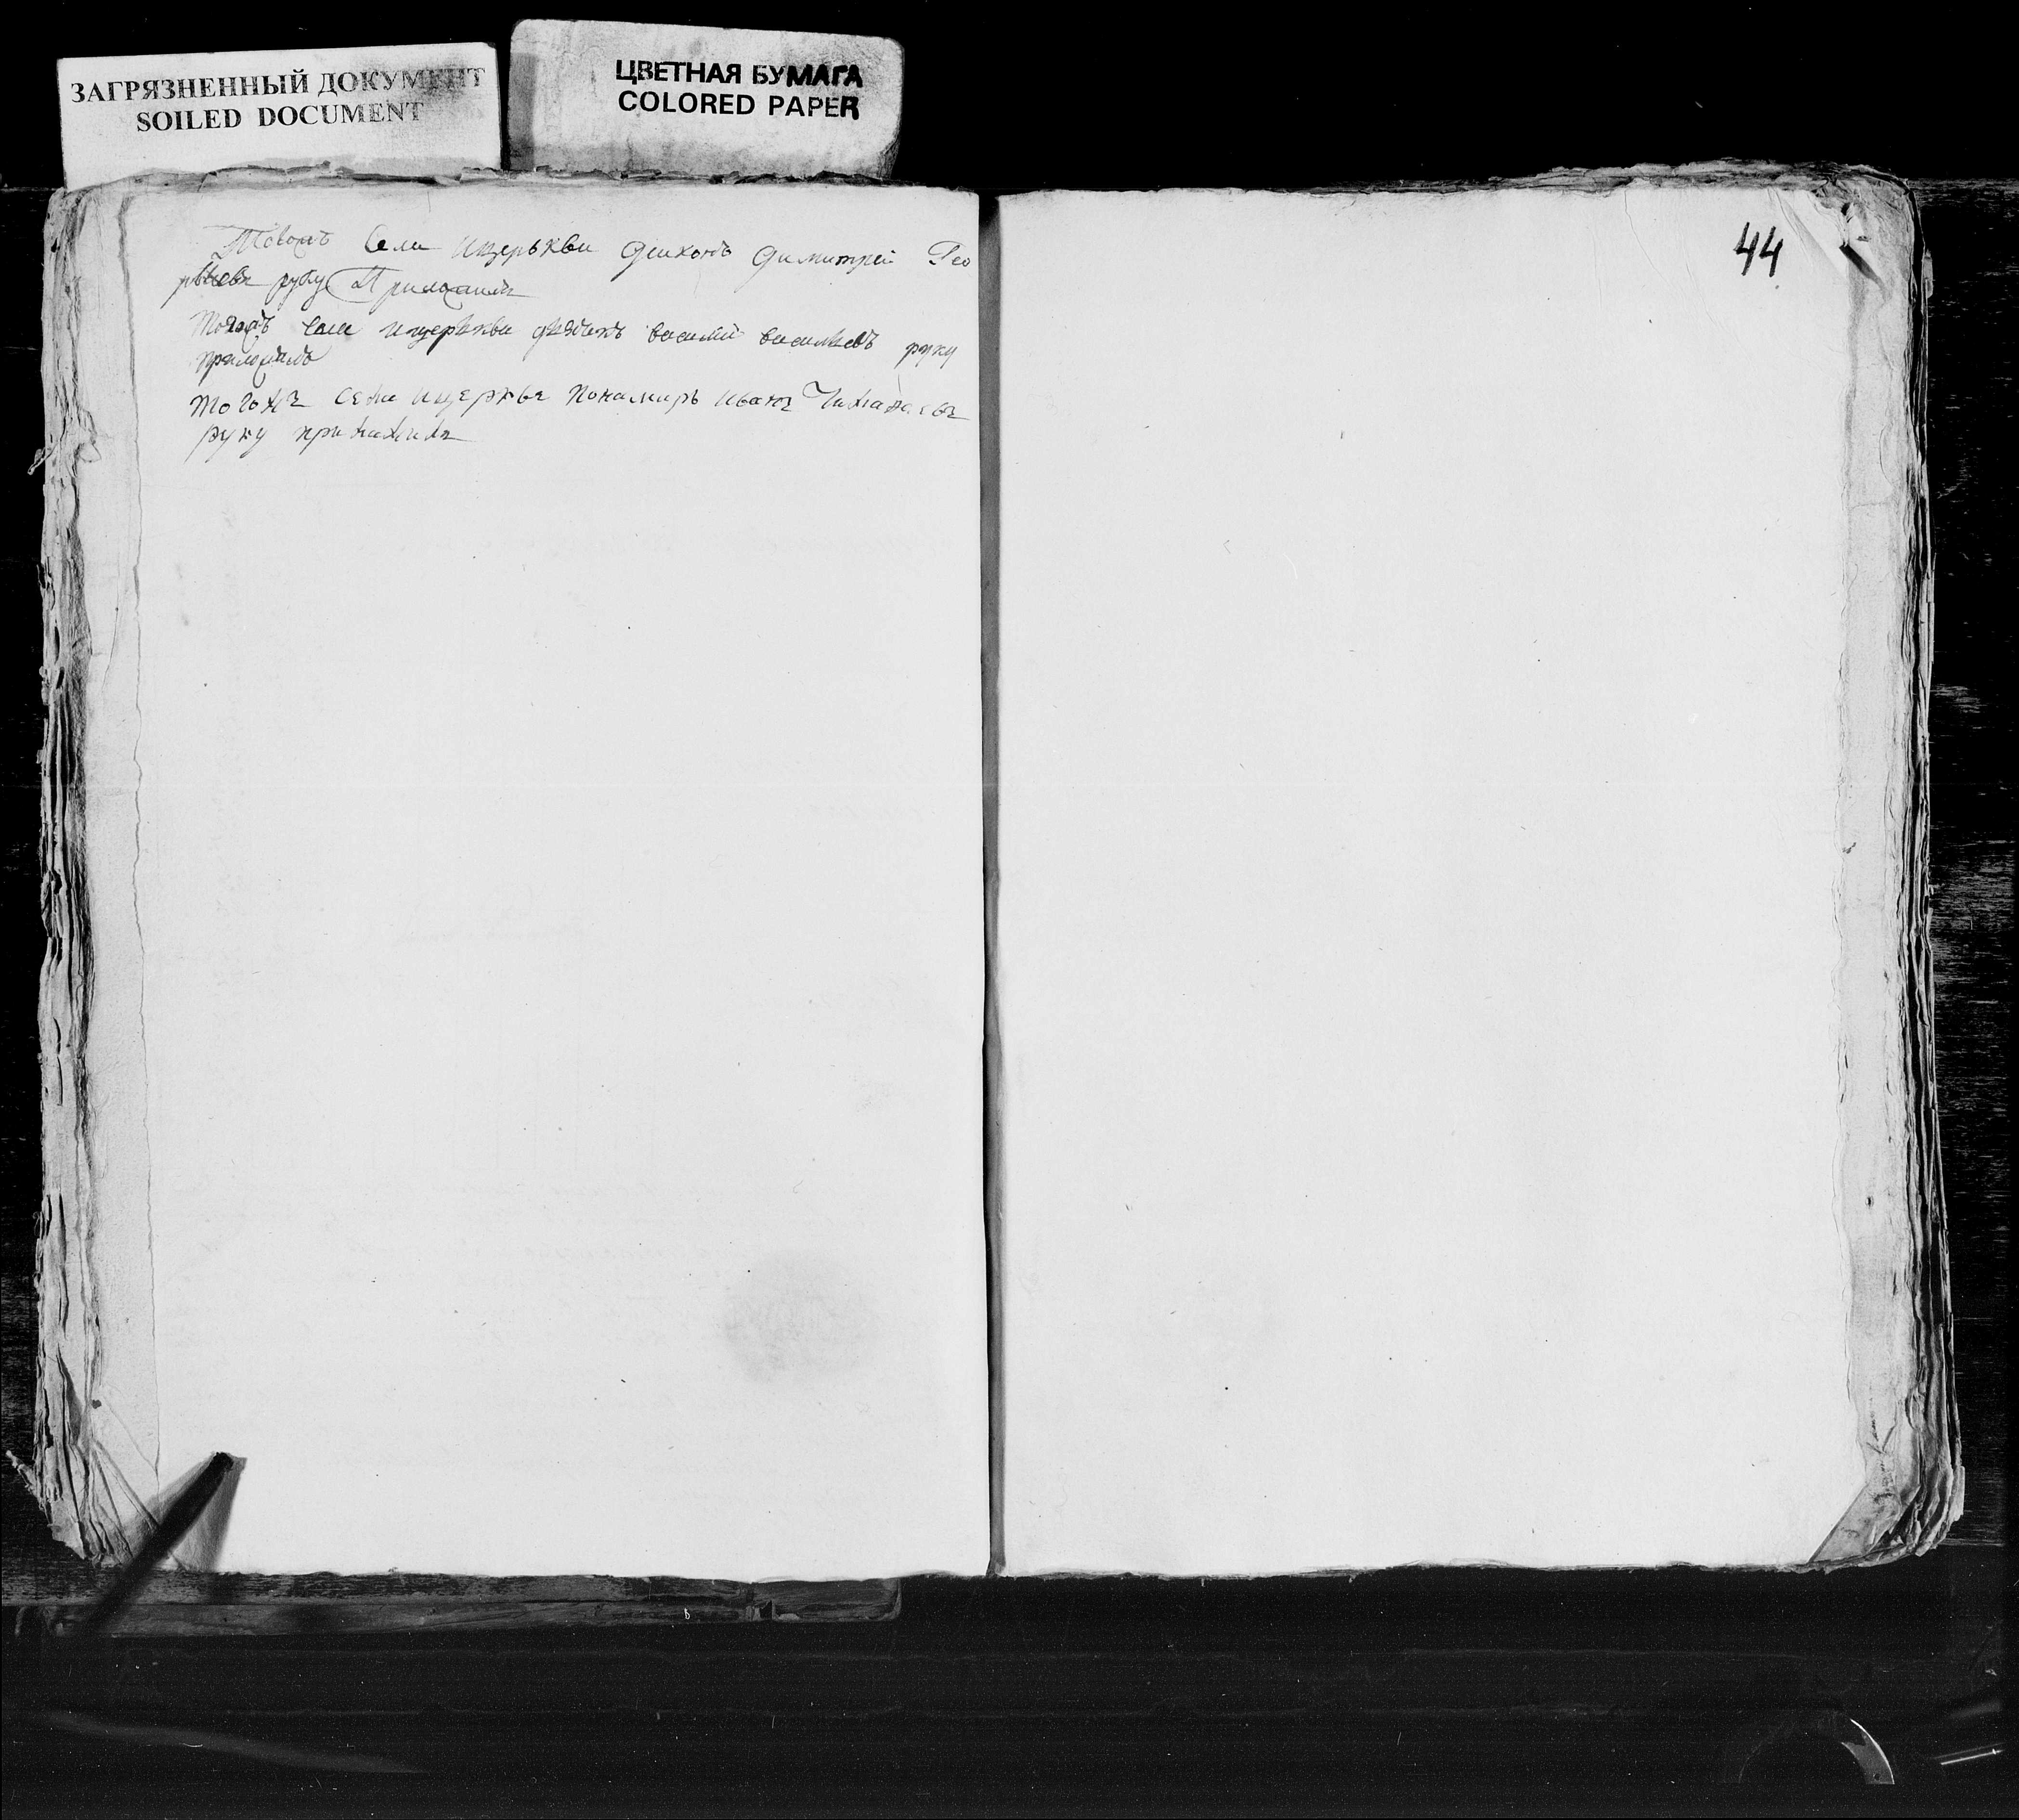 ЗАГРЯЗНЕННЫЙ ДОКУМЕНТ
SOILED DOCUMENT
ЦВЕТНАЯ БУМАГА
COLORED PAPER
44
Тогожъ села ицерькви диаконъ Димитрей Гео
ргиевъ руку Приложилъ
тогожъ села ицерькви дьячекъ василий васильевъ руку
приложилъ
тогожъ села ицеркве понамиръ иванъ
руку приложилъ